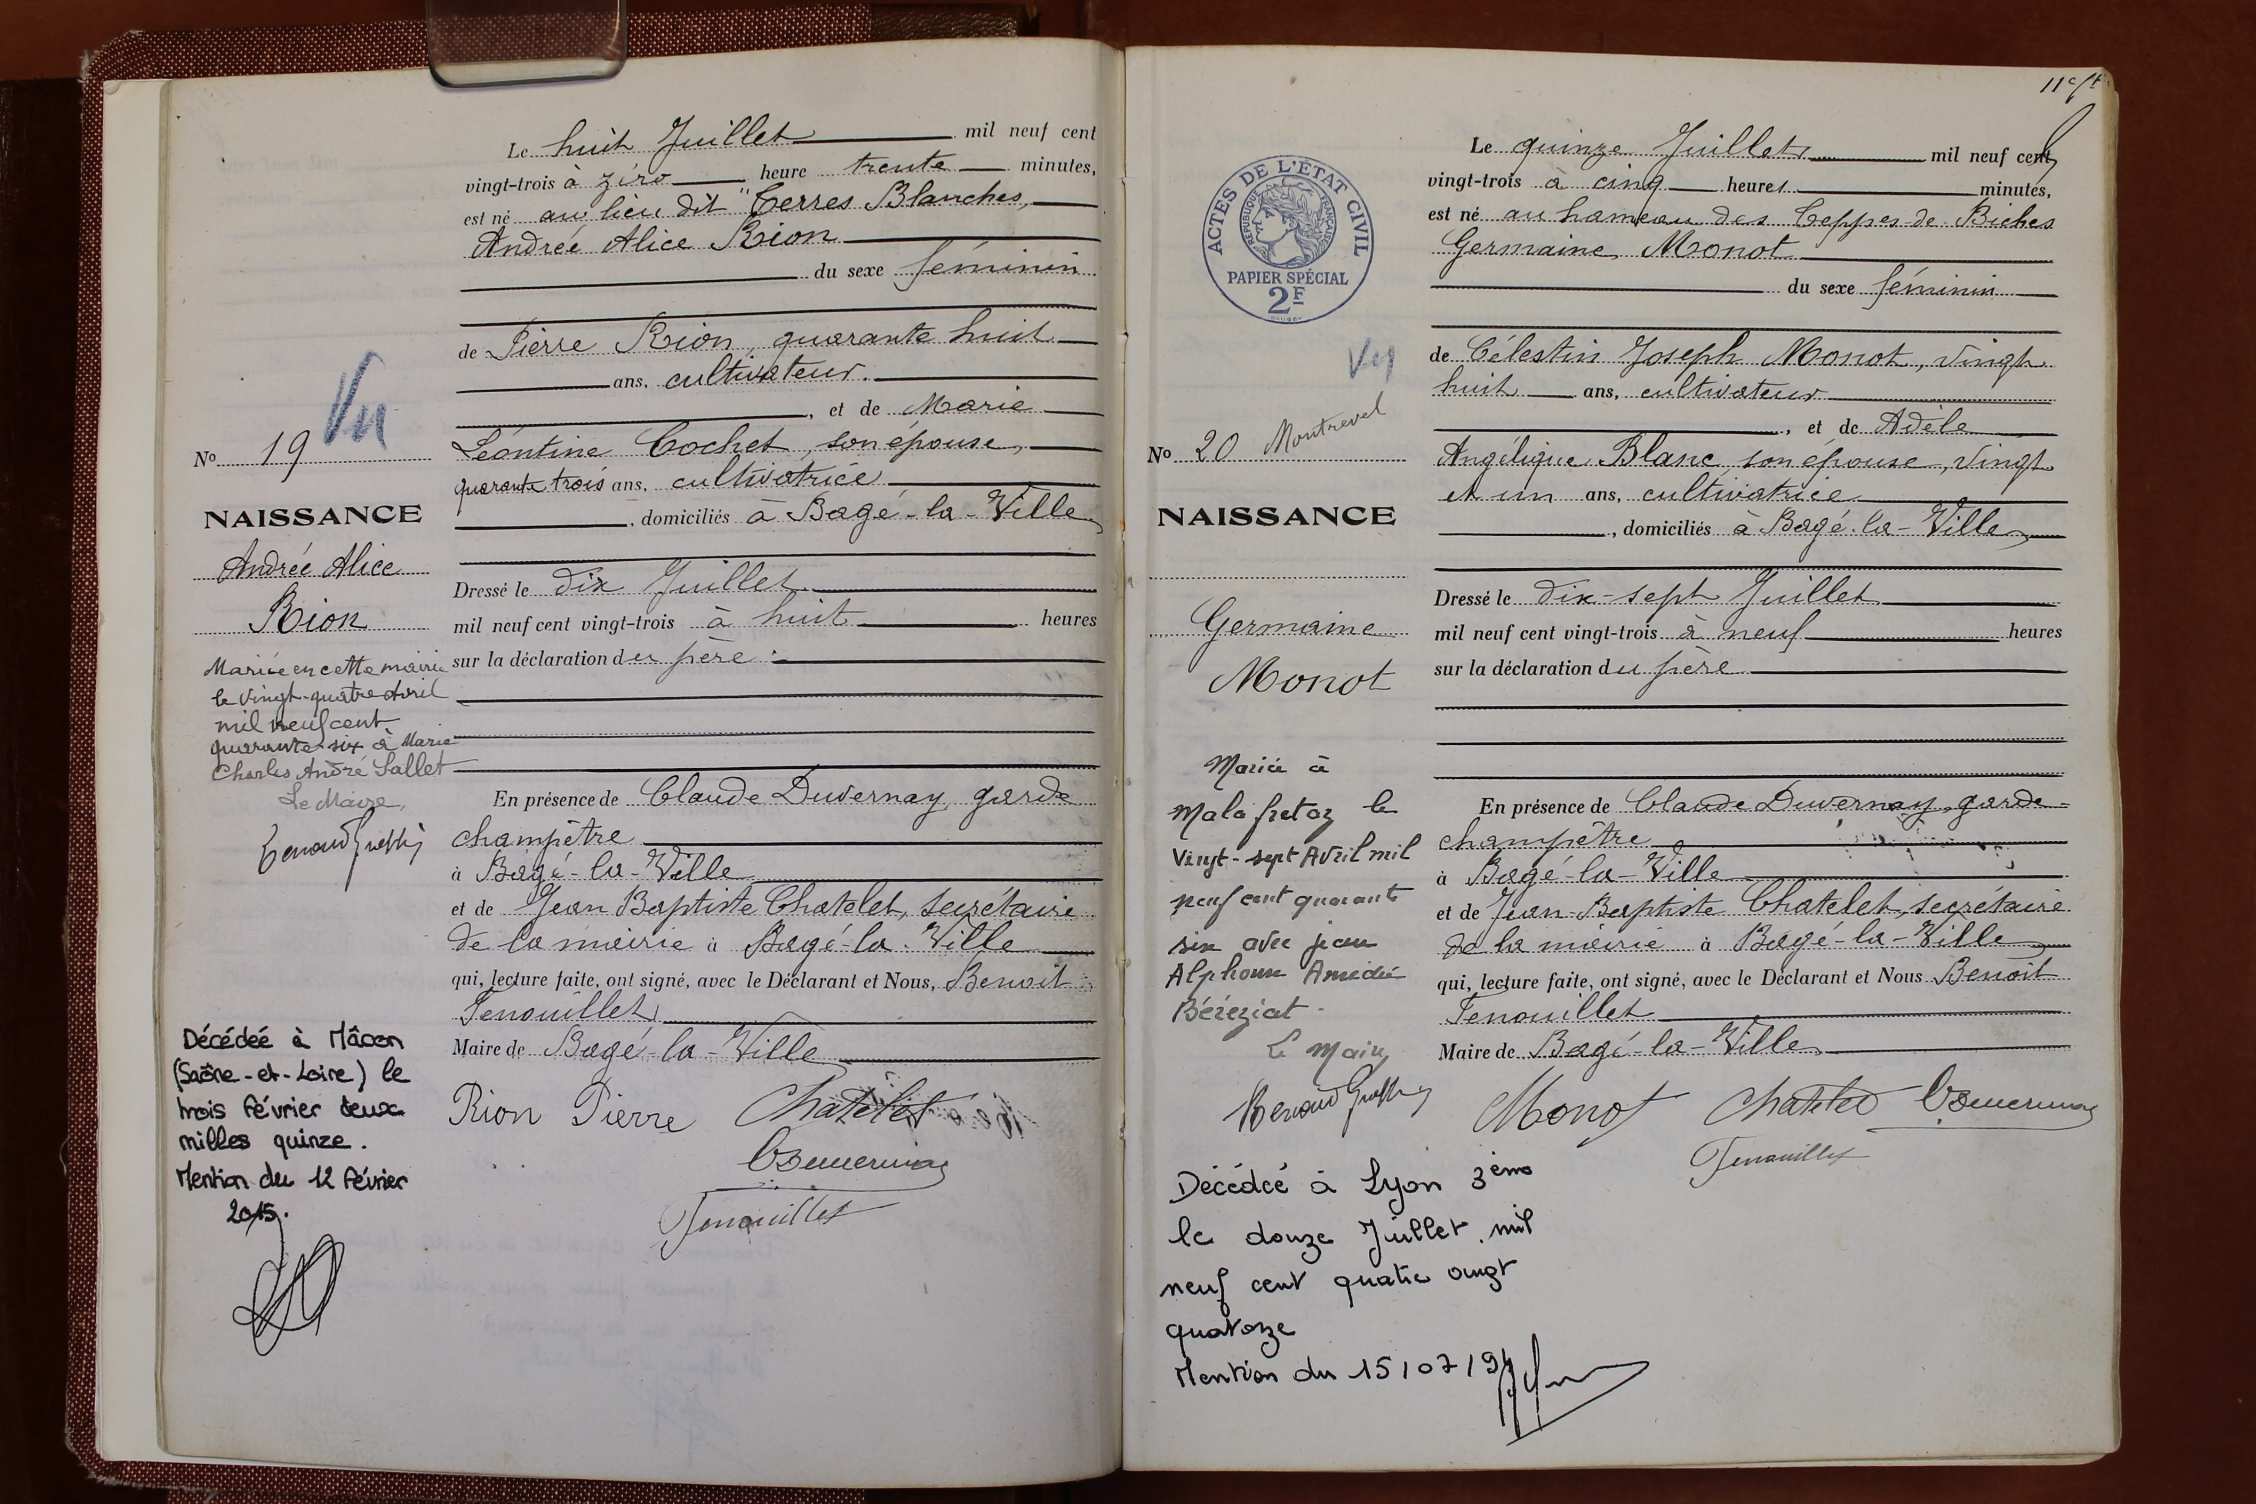 Le huit Juillet mil neuf cent
vingt-trois à zéro heure trente minutes,
est né au lieu dit "Terres Blanches,
Andrée Alice Rion
du sexe féminin
de Pierre Rion, quarante huit
ans, cultivateur.
, et de Marie
Léontine Cochet, son épouse,
quarante trois ans, cultivatrice
, domiciliés à Bagé-la-Ville
Dressé le dix Juillet
mil neuf cent vingt-trois à huit heures
sur la déclaration du père.
En présence de Claude Duvernay, garde
champêtre
à Bagé-la-Ville
et de Jean Baptiste Chatelet, secrétaire
de la mairie à Bagé-la-Ville
qui, lecture faite, ont signé, avec le Déclarant et Nous, Benoit
Fenouillet
Maire de Bagé-la-Ville
Rion Pierre Chatelet
Fenouillet
Vu
No 19
NAISSANCE
Andrée Alice
Rion
Mariée en cette mairie
le vingt-quatre Avril
mil neuf cent
quarante-six à Marie
Charles André Sallet
Le Maire,
Décédée à Mâcon
(Saône-et-Loire) le
trois février deux
milles quinze.
Mention du 12 Février
2015.
Le quinze Juillet mil neuf cent
vingt-trois à cinq heures minutes,
est né au hameau des Teppes-de-Biches
Germaine Monot
du sexe féminin
de Célestin Joseph Monot, vingt
huit ans, cultivateur
, et de Adèle
Angélique Blanc son épouse, vingt
et un ans, cultivatrice
, domiciliés à Bagé-la-Ville
Dressé le dix-sept Juillet
mil neuf cent vingt-trois à neuf heures
sur la déclaration du père
En présence de Claude Duvernay, garde-
champêtre
à Bagé-la-Ville
et de Jean-Baptiste Chatelet, secrétaire
de la mairie à Bagé-la-Ville
qui, lecture faite, ont signé, avec le Déclarant et Nous Benoit
Fenouillet
Maire de Bagé-la-Ville
Monot Chatelet
Fenouillet
ACTES DE L'ÉTAT CIVIL
RÉPUBLIQUE FRANÇAISE
PAPIER SPÉCIAL
2F
Vu
No 20 Montrevel
NAISSANCE
Germaine
Monot
Mariée à
Malafretaz le
Vingt-sept Avril mil
neuf cent quarante
six avec Jean
Alphonse Amédée
Béréziat.
Le Maire
Décédée à Lyon 3ème
le douze Juillet mil
neuf cent quatre vingt
quatorze
Mention du 15/07/94